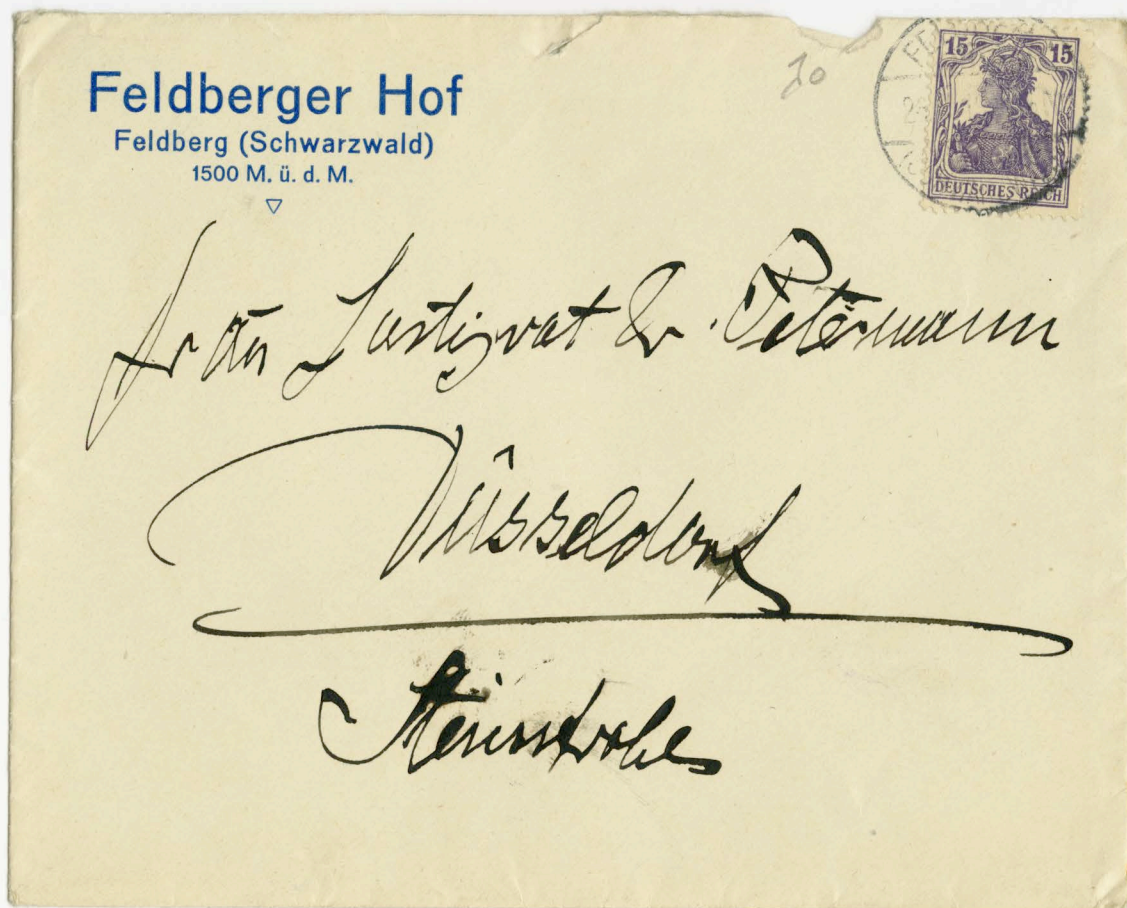 Feldberger Hof
Feldberg (Schwarzwald)
1500 M. ü. d. M.
20
15 15
DEUTSCHES REICH
Justizrat Dr. Petermann
Düsseldorf
Steinstraße